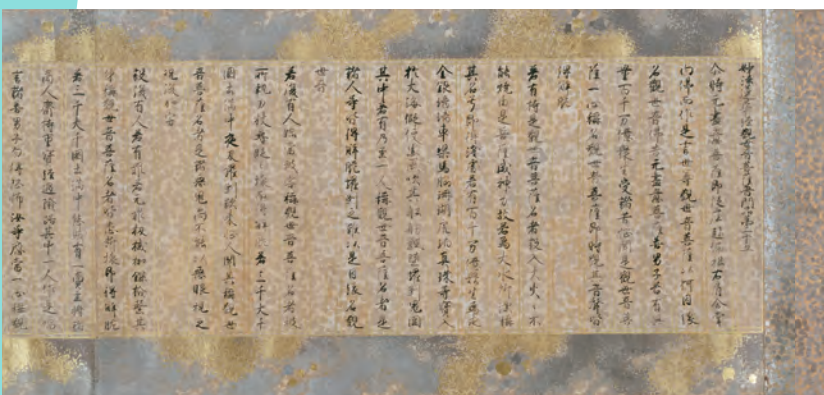 妙法蓮華經觀世音菩薩普門品第二十五
尒時无盡意菩薩即從座起偏袒右肩合掌
向佛而作是言世尊觀世音菩薩以何因緣
名觀世音佛告无盡意菩薩善男子若有无
量百千万億衆生受諸苦惱聞是觀世音菩
薩一心稱名觀世音菩薩即時觀其音聲皆
得解脫
若有持是觀世音菩薩名者設入大火火不
能燒由是菩薩威神力故若爲大水所漂稱
其名号即得淺處若有百千万億衆生爲求
金銀瑠璃車璖馬瑙珊瑚琥珀真珠等寶入
於大海假使黑風吹其船舫飄墮羅刹鬼國
其中若有乃至一人稱觀世音菩薩名者是
諸人等皆得解脫羅刹之難以是因緣名觀
世音
若復有人臨當被害稱觀世音菩薩名者彼
所執刀杖尋段段壞而得解脫若三千大千
國土滿中夜叉羅刹欲來惱人聞其稱觀世
音菩薩名者是諸惡鬼尚不能以惡眼視之
況復加害
設復有人若有罪若无罪杻械枷鎖檢繫其
身稱觀世音菩薩名者皆悉斷壞即得解脫
若三千大千國土滿中怨賊有一商主將諸
商人齎持重寶經過嶮路其中一人作是唱
言諸善男子勿得恐怖汝等應當一心稱觀